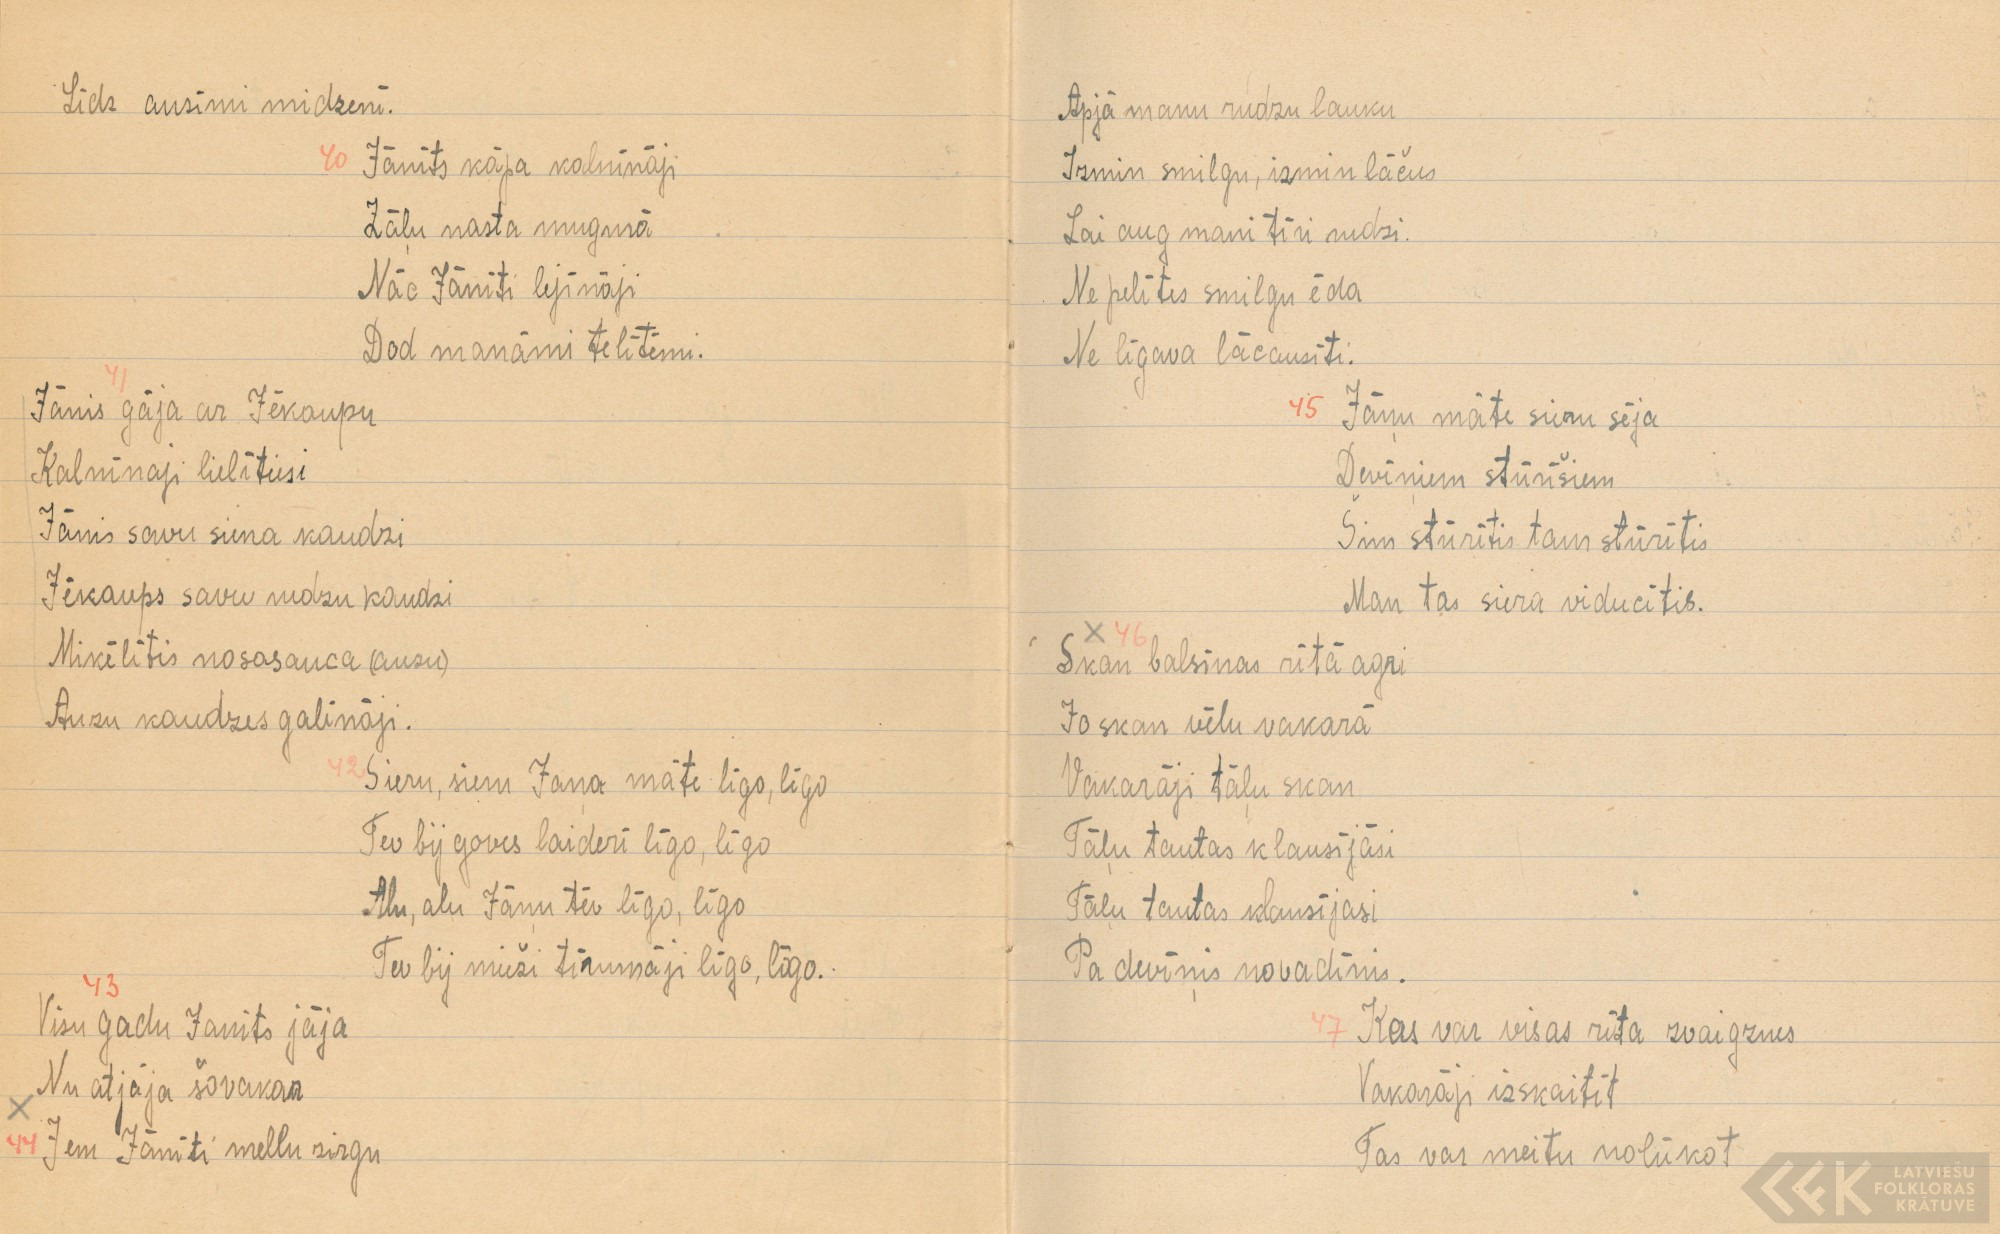 Līdz ausīmi midzenī.
40 Jānīts kāpa kalnīnāji
Zāļu nasta mugurā
Nāc Jānīti lejīnāji
Dod manāmi telītēmi.
41
Jānis gāja ar Jēkaupu
Kalnīnaji lielītiesi
Jānis savu siena kaudzi
Jēkaups savu rudzu kaudzi
Mikēlītis nosasauca (auzu)
Auzu kaudzes galīnāji.
42 Sieru, sieru Jaņa māte līgo, līgo
Tev bij goves laiderī līgo, līgo
Alu, alu Jāņu tēv līgo, līgo
Tev bij mieži tīrumāji līgo, līgo.
43
Visu gadu Janīts jāja
Nu atjāja šovakar
44 Jem Jānīti mellu zirgu
Apjā manu rudzu lauku
Izmin smilgu, izmin lāčus
Lai aug mani tīri rudzi.
Ne pelītes smilgu ēda
Ne līgava lācausīti.
45 Jāņu māte sieru sēja
Devīņiem stūrīšiem
Šim stūrītis tam stūrītis
Man tas siera viducītis.
46
Skan balsīnas rītā agri
Jo skan vēlu vakarā
Vakarāji tāļu skan
Tāļu tautas klausījāsi
Tāļu tautas klausījasi
Pa devīņis novadīnis.
47 Kas var visas rīta zvaigznes
Vakarāji izskaitīt
Tas var meitu nolūkot
LATVIEŠU
FOLKLORAS
KRĀTUVE